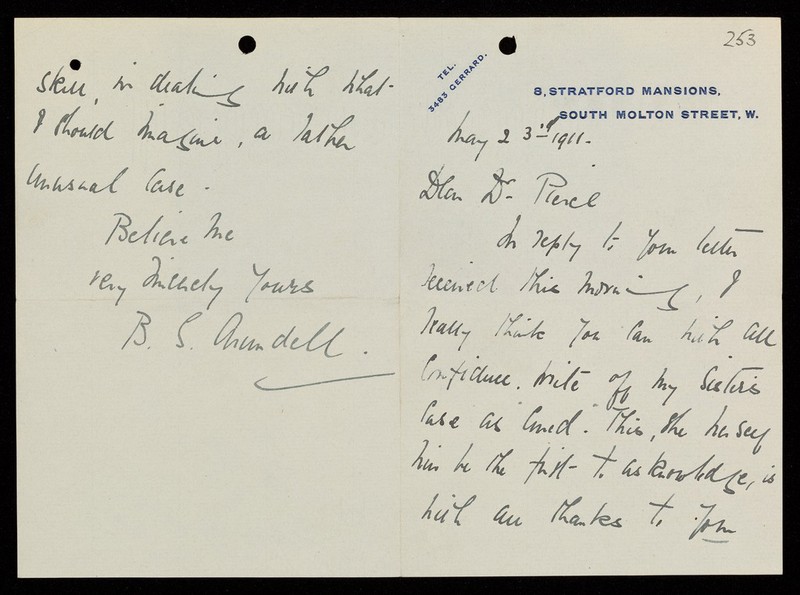 253
TEL.
3483 GERRARD.
8, STRATFORD MANSIONS,
SOUTH MOLTON STREET, W.
May 23rd 1911.
Dear Dr. Pierce
In reply to your letter
received this morning, I
really think you can with all
confidence write off my sister's
case as "cured". This, she herself
will be the first to acknowledge, is
with all thanks to your
skill, in dealing with what
I should imagine, a rather
unusual case.
Believe me
very sincerely yours
B. S. Arundell.